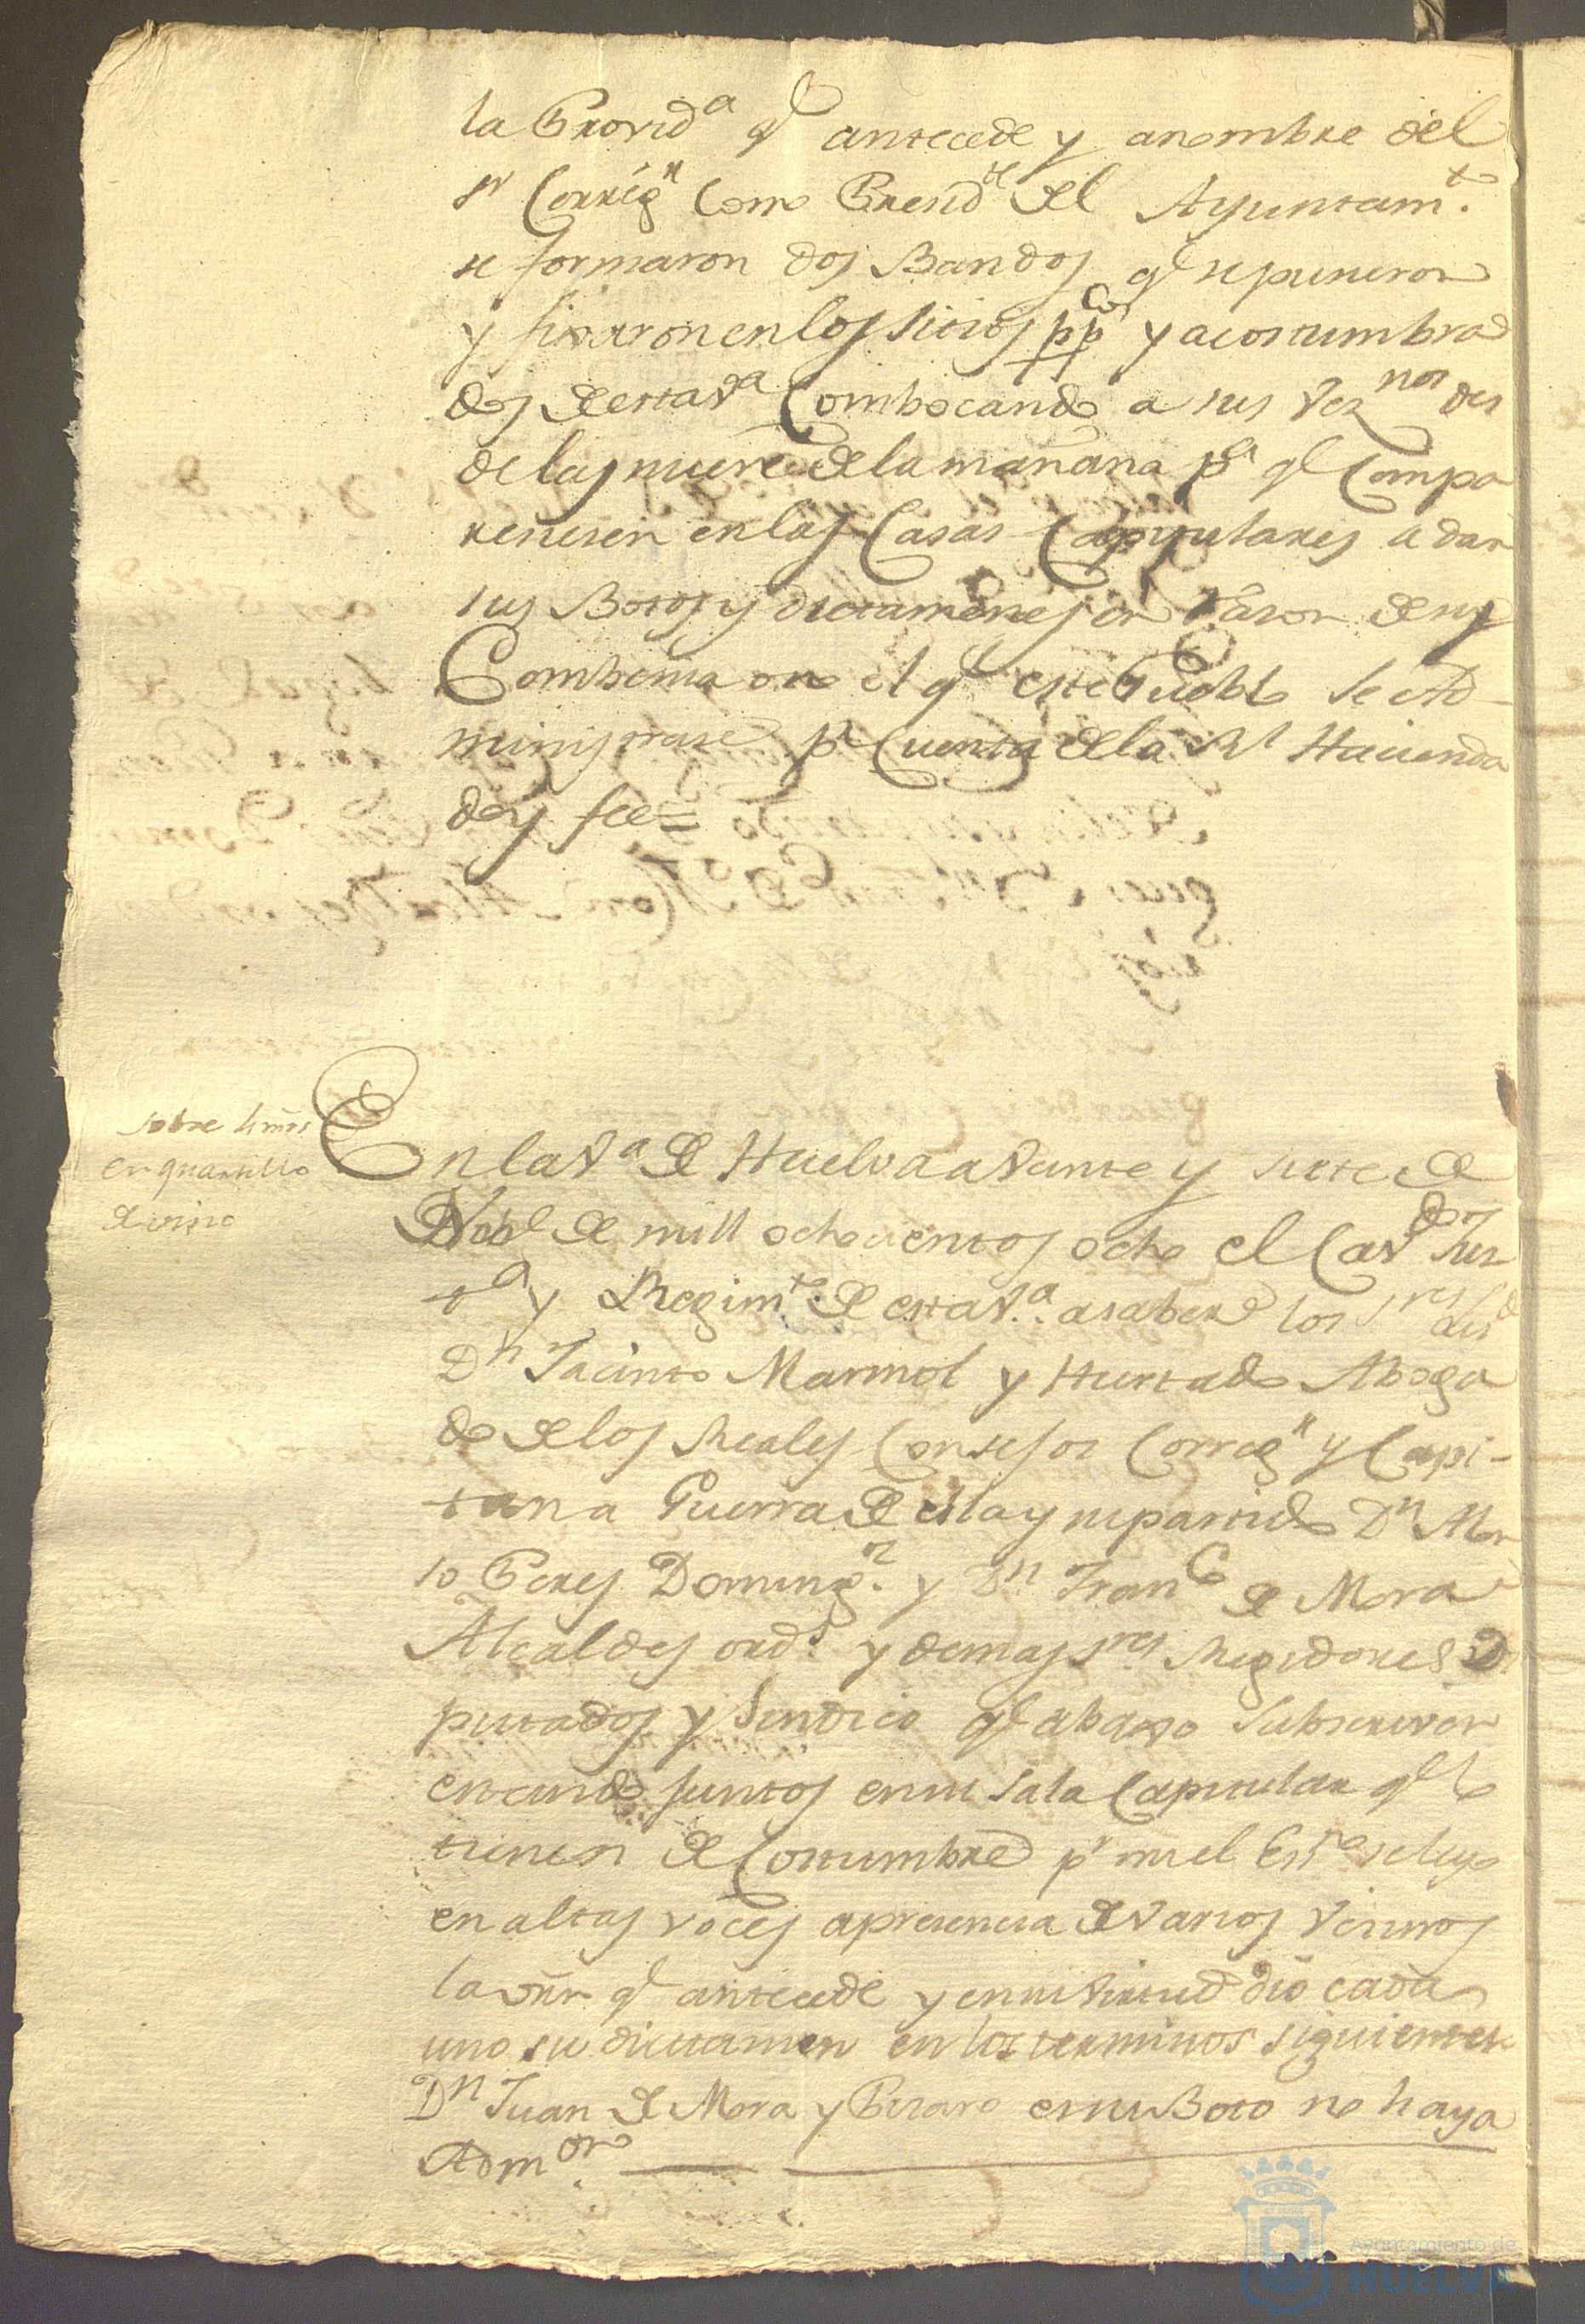 la Provid.a q.e antecede y anombre del
s.r Correg.r Como Presid.te del Ayuntam.to
se formaron dos Bandos q.e sepusieron
y fixaron enlos sitios pp.cos y acostumbra
dos de esta V.a Combocando a sus Vez.nos des
de las nueve dela mañana p.a q.e Compa
reciesen enlas Casas Capitulares a dar
sus Botos y dictamenes en razon de si
Combenia o no el q.e este Pueblo se Ad-
ministrase p.r Cuenta dela R.l Hacienda
doy fee=
sobre
en quartillo
de vino
En la V.a de Huelva a Veinte y siete de
Nob.e de mill ochocientos ocho el Cav.do Jus
t.a y Regim.to de esta V.a asaber los S.res Lis.do
D.n Jacinto Marmol y Hurtado Aboga
do delos Reales Consejos Correg.r y Capi-
tan a Guerra de ella y su partido D.n Alon
so Peres Doming.z y D.n Fran.co de Mora
Alcaldes ord.s y demas S.res Regidores D
putados y Sindico q.e abaxo Subscriven
estando Juntos en su Sala Capitular q.e lo
tienen de Costumbre p.r mi el Es.no se leyo
en altas voces apresencia de Varios Vecinos
la orn. q.e antecede y en su Virtud dio cada
uno su dictamen en los terminos siguientes
D.n Juan de Mora y Pizaro es su Boto no haya
Adm.on
Ayuntamiento de
HUELVA